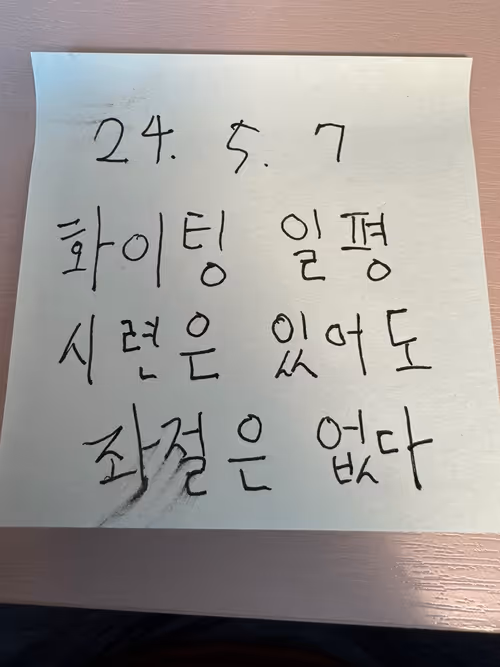 24. 5. 7
화이팅 일평
시련은 있어도
좌절은 없다